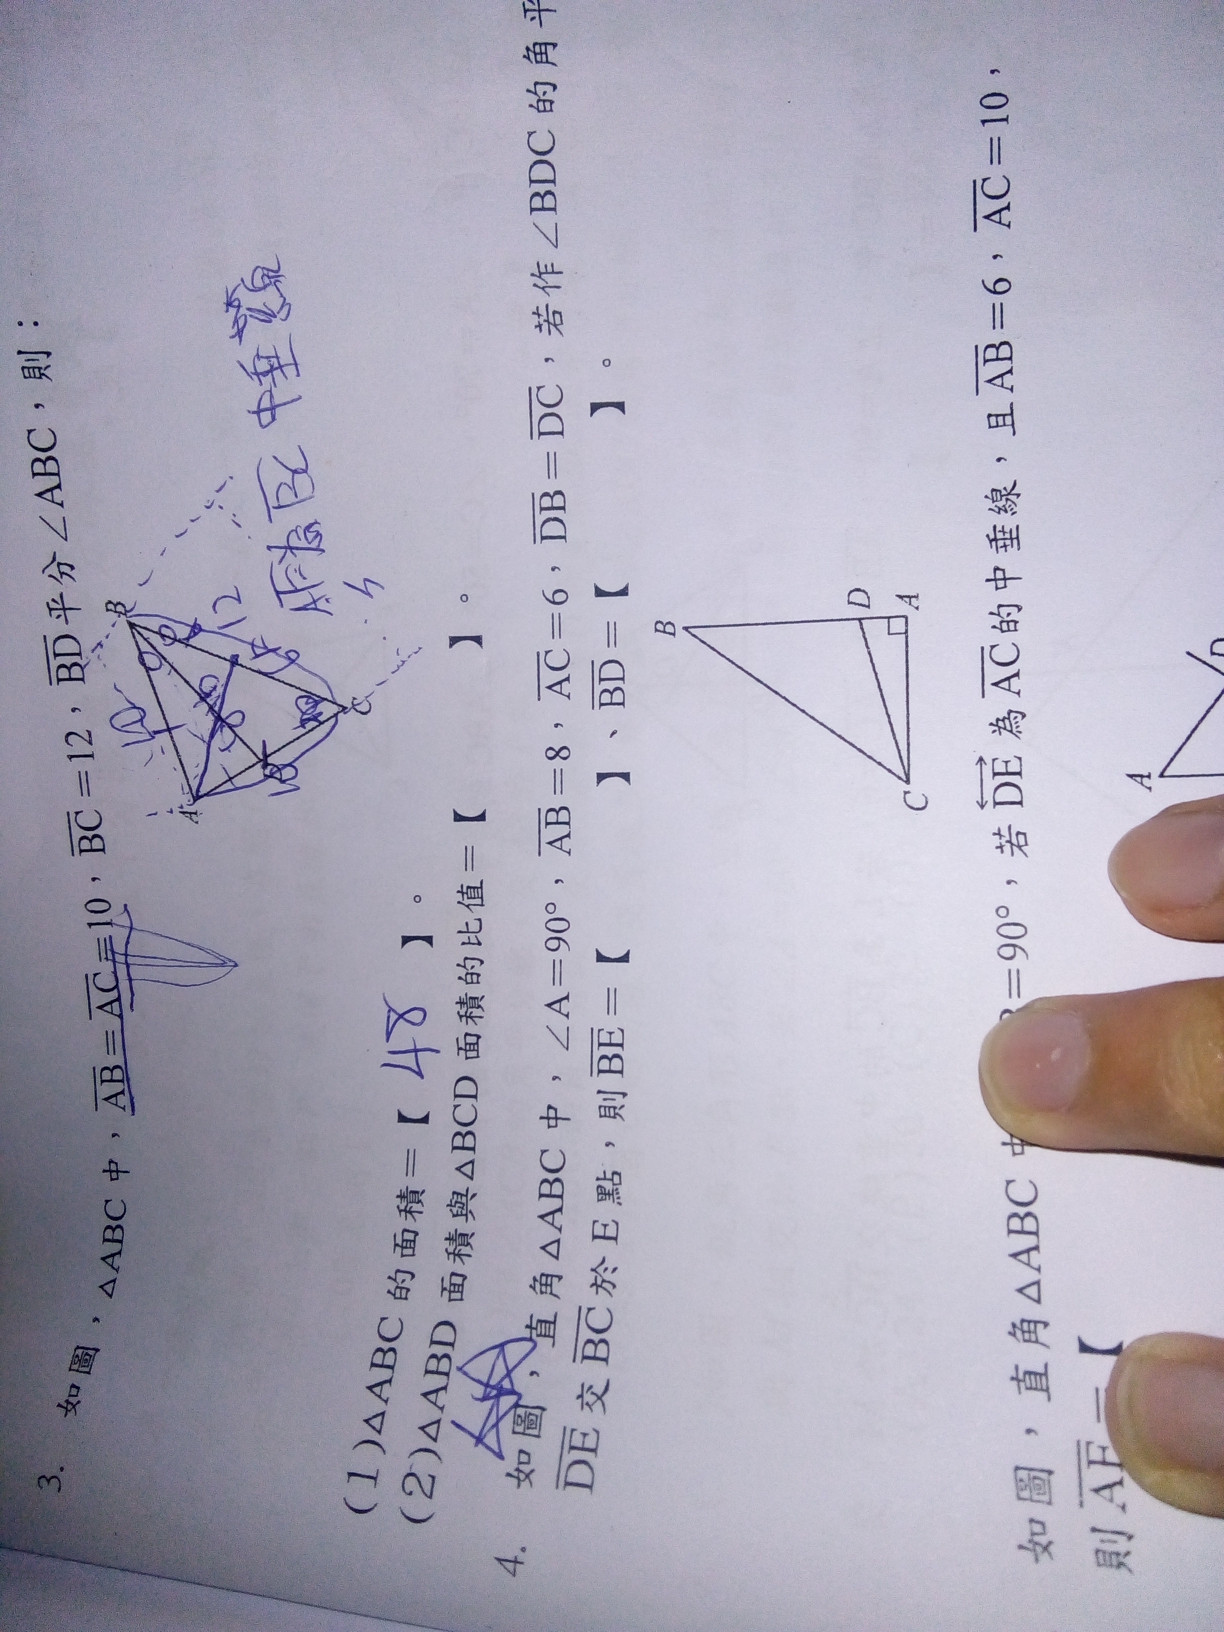 3. 如圖，△ABC 中，AB=AC=10，BC=12，BD平分∠ABC，則：
A
B
C
10
12
作為BC中垂線
(1)△ABC 的面積=【 48 】。
(2)△ABD 面積與△BCD 面積的比值=【 】。
4. 如圖，直角△ABC 中，∠A=90°，AB=8，AC=6，DB=DC，若作∠BDC 的角平
DE 交 BC 於 E 點，則 BE=【 】、BD=【 】。
B
D
A
C
如圖，直角△ABC 中 =90°，若 DE 為 AC 的中垂線，且 AB=6，AC=10，
則 AE=【
A